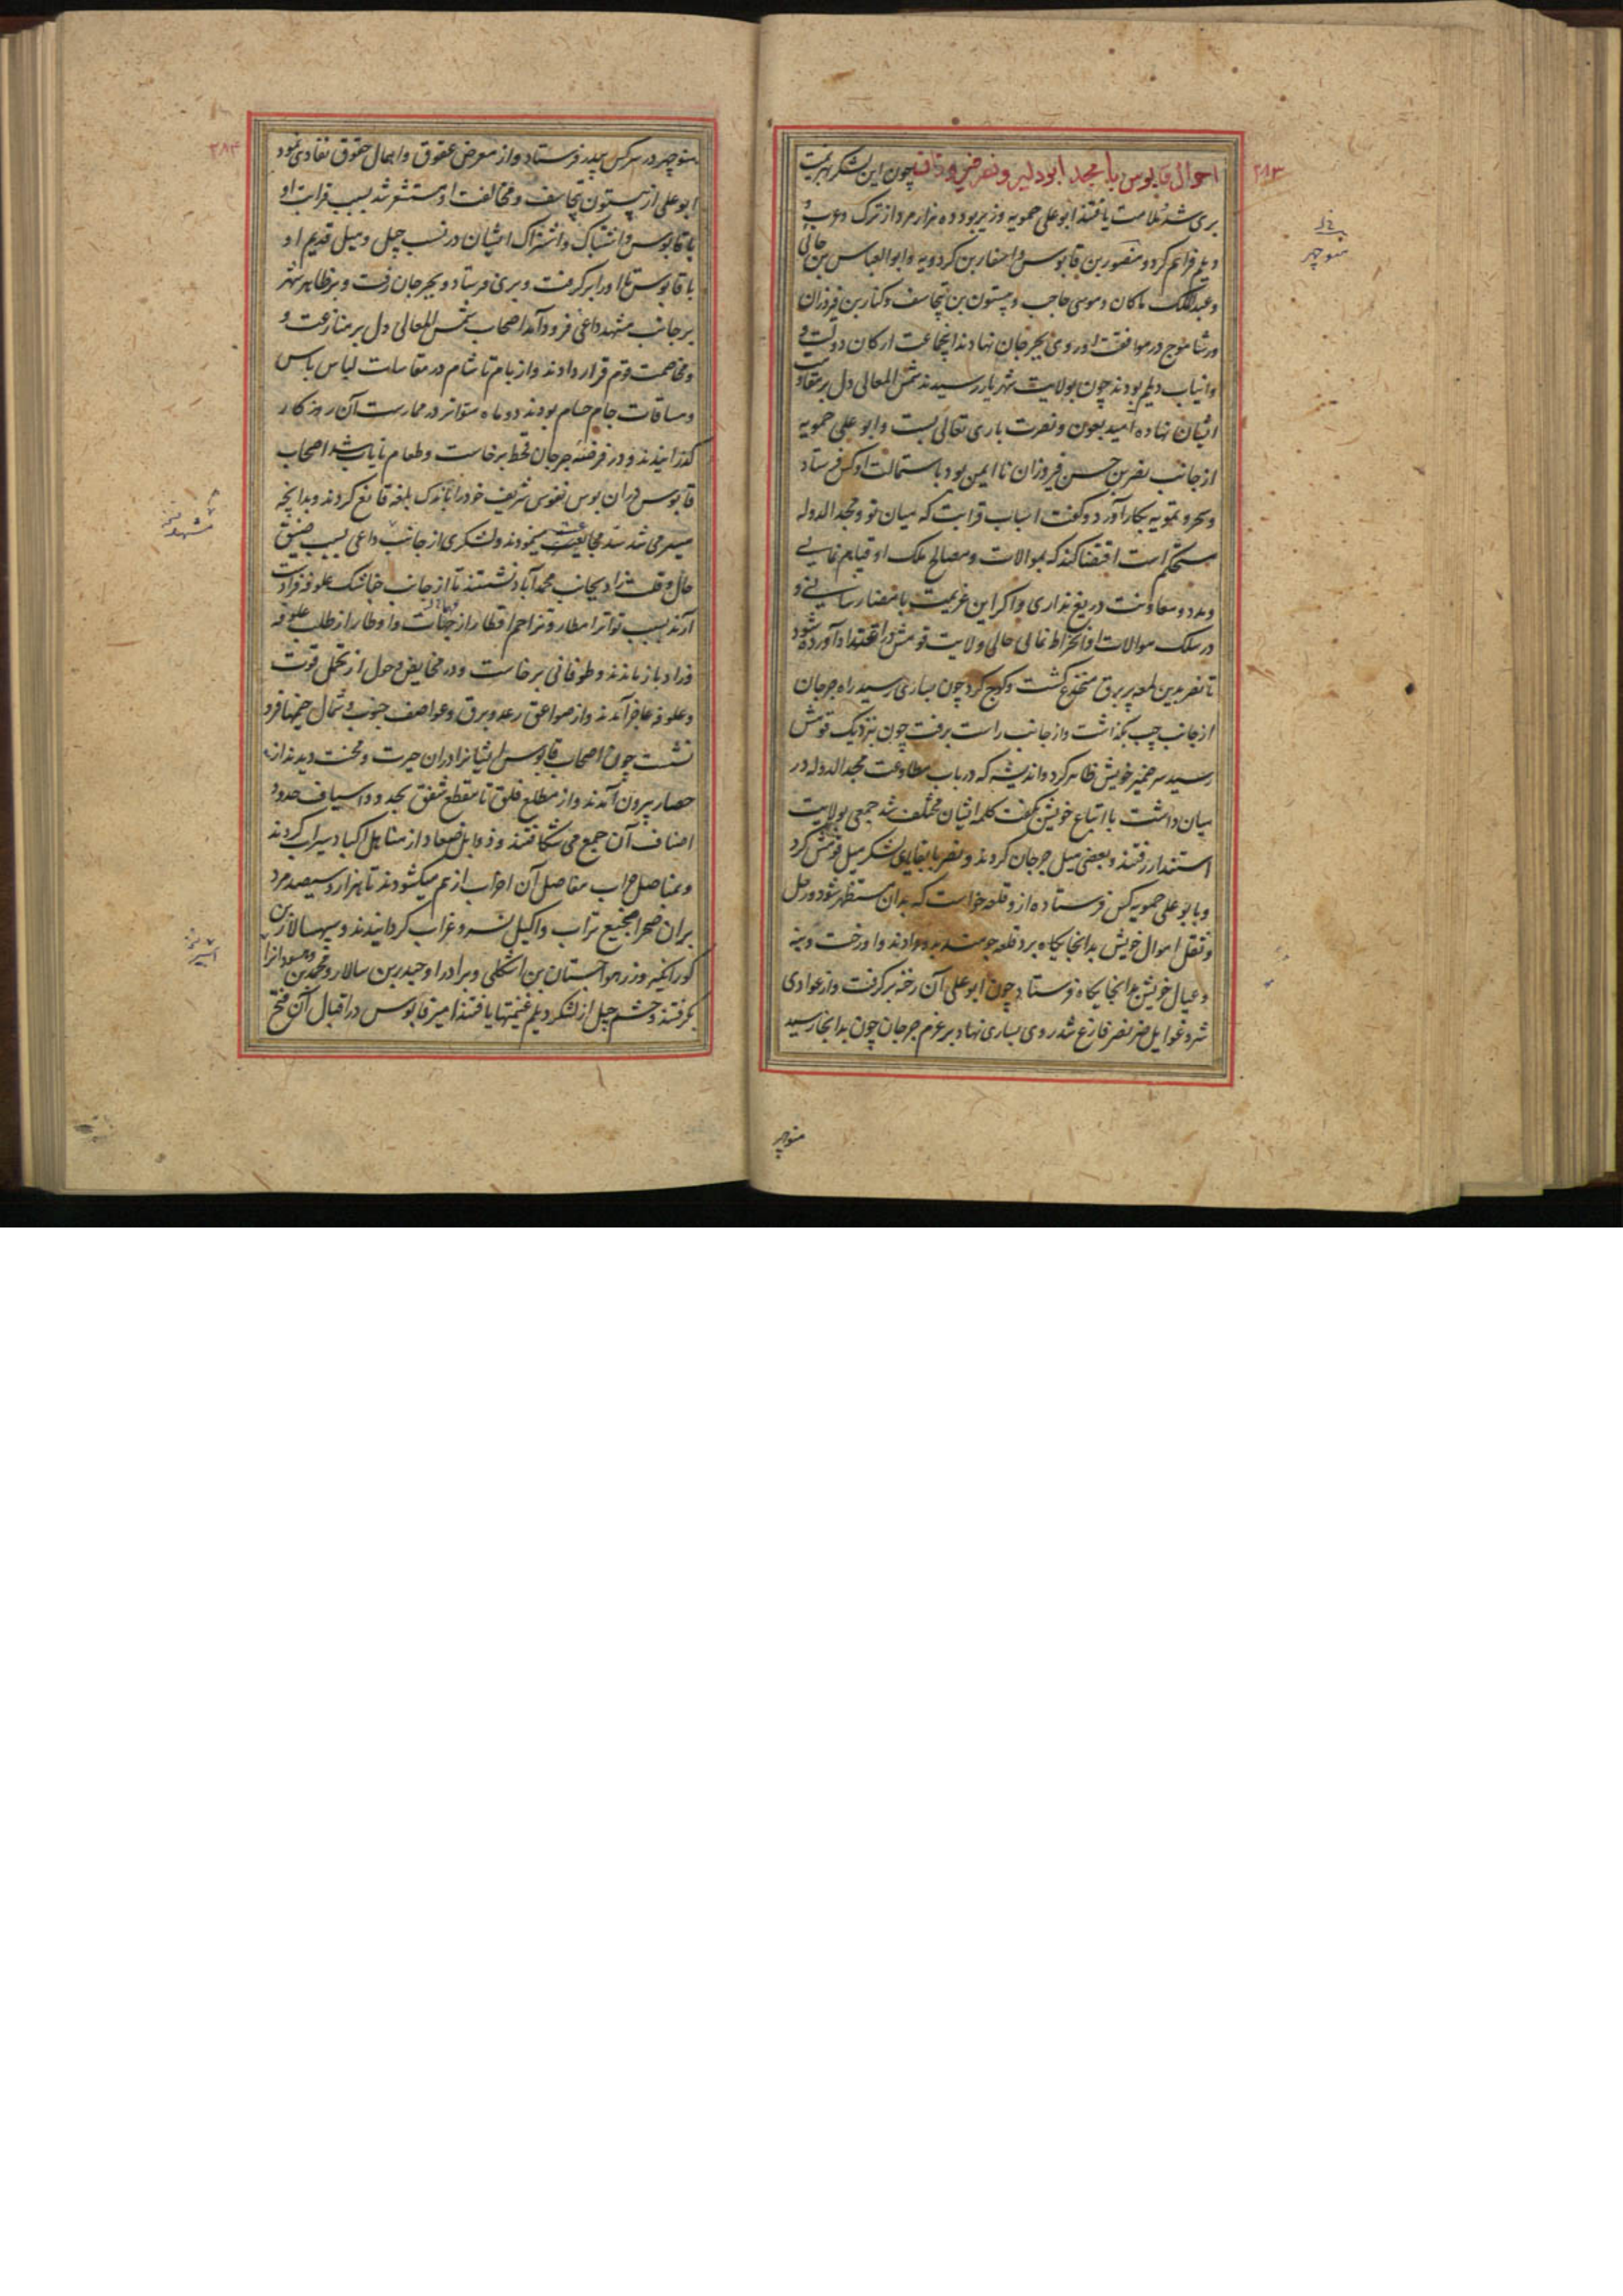 احوال قابوس با مجد ابو دلیر و نصر چون این لشکر بهزیمت
بری شد ملامت یافتند ابو علی حمویه وزیر بود ده هزار مرد از ترک و عرب و
دیلم فراهم کرد و منصور بن قابوس و اصفار بن کردویه و ابو العباس بن جائی
و عبدالملک ماکان و موسی حاجب و بیستون بن تیجاسف و کنار بن فیروزان
و رشاموج در موافقت او روی بجرجان نهادند اینجماعت ارکان دولت و
وانیاب دیلم بودند چون بولایت شهریار رسیدند شمس المعالی دل بر مقاومت
ایشان نهاد و امید بعون و نصرت باری تعالی بست و ابو علی حمویه
از جانب نصر بن حسن فیروزان نا ایمن بود باستمالت او کس فرستاد
و سحر و تمویه بکار آورد و گفت اسباب قرابت که میان تو و مجد الدوله
مستحکم است اقتضا کند که بموالات و مصالح ملک او قیام نمایی
و مدد و معاونت دریغ نداری و اگر این عزیمت بامضا رسانی و
در سلک موالات او انخراط نمائی حالی ولایت قومش در اعتداد آورده شود
تا نصر بدین لمعه پر برق منخدع گشت و کوچ کرد چون بساری رسید راه جرجان
از جانب چپ بگذاشت و از جانب راست برفت چون بنزدیک قومش
رسید سر ضمیر خویش ظاهر کرد و اندیشه که در باب مطاوعت مجد الدوله در
میان داشت با اتباع خویش بگفت کلمه ایشان مختلف شد جمعی بولایت
استندار رفتند و بعضی میل جرجان کردند و نصر با بقایای لشکر میل قومش کرد
و بابو علی حمویه کس فرستاد و از و قلعه خواست که بدان مستظهر شود و رحل
و ثقل اموال خویش بدانجایگاه برد قلعه جومند بدو دادند و او رخت و بنه
و عیال خویش بدانجایگاه فرستاد چون ابو علی آن رخنه برگرفت و از عوادی
شر و غوایل ضر نصر فارغ شد روی بساری نهاد بر عزم جرجان چون بدانجا رسید
منوچهر
۲۸۳
منوچهر
منوچهر در سر کس بپدر فرستاد و از معرض عقوق و اهمال حقوق تفادی نمود
ابو علی از بیستون تیجاسف و مخالفت او مستشعر شد بسبب قرابت او
با قابوس و اشتباک و اشتراک ایشان در نسب جیل و میل قدیم او
با قابوس تا او را برگرفت و بری فرستاد و بجرجان رفت و بر ظاهر شهر
بر جانب مشهد داعی فرود آمد اصحاب شمس المعالی دل بر منازعت و
و مخاصمت قوم قرار دادند و از بام تا شام در مقاسات لباس باس
و مساقات جام حمام بودند دو ماه متواتر در ممارست آن روزگار
گذرانیدند و در فرضه جرجان قحط برخاست و طعام نایاب شد اصحاب
قابوس دران بوس نفوس شریف خود را باندک بلغه قانع کردند و بدانچه
میسر می شد سد مجاعت مینمودند و لشکری از جانب داعی بسبب ضیق
حال و قلت زاد بجانب محمدآباد نشستند تا از جانب خناشک علوفه فرادست
آرند بسبب تواتر امطار و تزاحم اقطار از جهات و اوطار از طلب علوفه
و زاد باز ماندند و طوفانی برخاست و در مخایض وحول از تحمل قوت
و علوفه عاجز آمدند و از صواعق رعد و برق و عواصف جنوب و شمال خیمها فرو
نشست چون اصحاب قابوس ایشانرا دران حیرت و محنت دیدند از
حصار بیرون آمدند و از مطلع فلق تا مقطع شفق بحدود اسیاف حدود
اصناف آن جمع می شکافتند و ذوابل صعاد از مناهل اکباد سیراب کردند
و بمناصل حراب مفاصل آن احزاب از هم میگشودند تا هزار و سیصد مرد
بران صحرا مجیع تراب و اکیل نسر و غراب گردانیدند و سپهسالار بن
کورانگیز و زرهوا جستان بن اشکلی و برادر او حیدر بن سالار و محمد بن و هسودانرا
بگرفتند و حشم جیل از لشکر دیلم غنیمتها یافتند امیر قابوس در اقبال آن فتح
۲۸۴
مشهد
اسیر